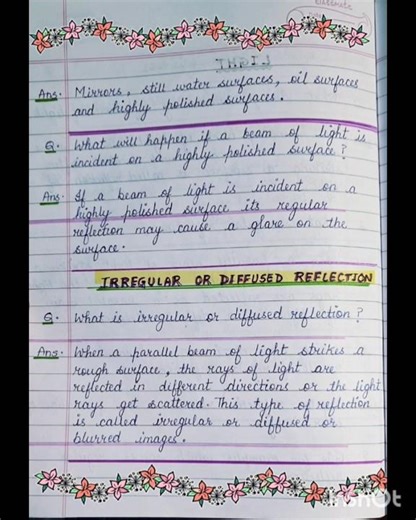 LIGHT
Ans. Mirrors, still water surfaces, oil surfaces
and highly polished surfaces.
Q. What will happen if a beam of light is
incident on a highly polished surface?
Ans. If a beam of light is incident on a
highly polished surface its regular
reflection may cause a glare on the
surface.
IRREGULAR OR DIFFUSED REFLECTION
Q. What is irregular or diffused reflection?
Ans. When a parallel beam of light strikes a
rough surface, the rays of light are
reflected in different directions or the light
rays get scattered. This type of reflection
is called irregular or diffused or
blurred images.